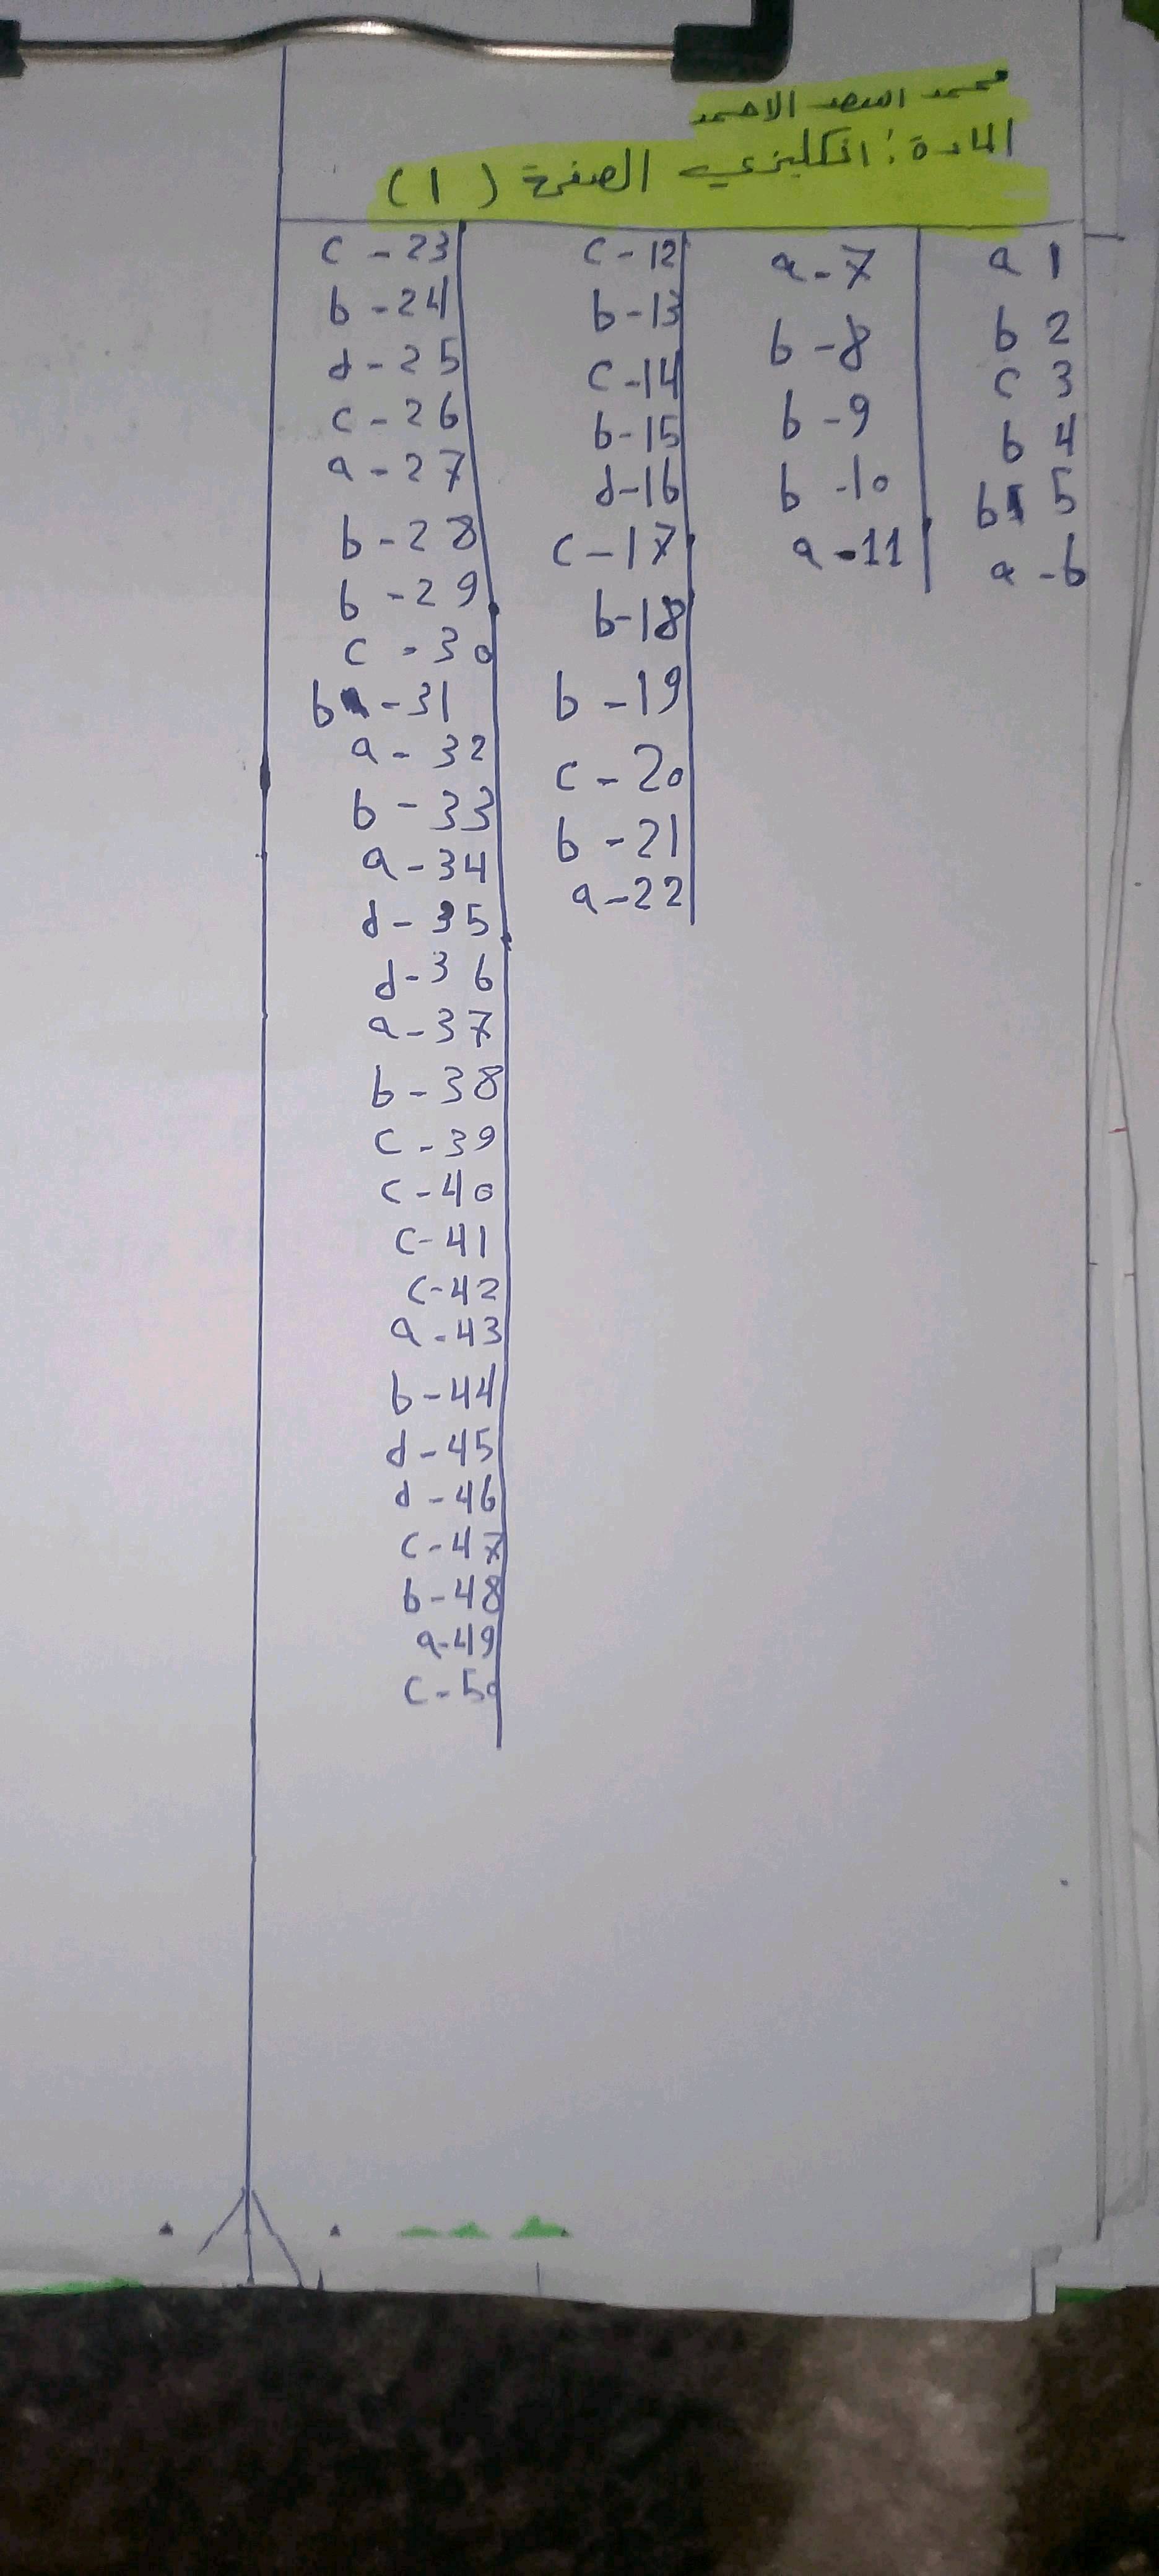 محمد اسعد الاحمد
المادة: انكليزي الصفحة (1)
a 1
b 2
c 3
b 4
b 5
a - 6
a - 7
b - 8
b - 9
b - 10
a - 11
c - 12
b - 13
c - 14
b - 15
d - 16
c - 17
b - 18
b - 19
c - 20
b - 21
a - 22
c - 23
b - 24
d - 25
c - 26
a - 27
b - 28
b - 29
c - 30
b - 31
a - 32
b - 33
a - 34
d - 35
d - 36
a - 37
b - 38
c - 39
c - 40
c - 41
c - 42
a - 43
b - 44
d - 45
d - 46
c - 47
b - 48
a - 49
c - 50